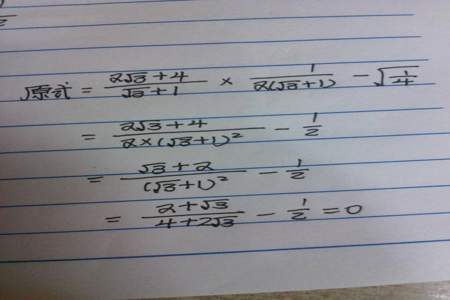 原式 = (2√3+4)/(√3+1) × 1/(2(√3+1)) − √(1/4)
= (2√3+4)/(2×(√3+1)²) − 1/2
= (√3+2)/((√3+1)²) − 1/2
= (2+√3)/(4+2√3) − 1/2 = 0